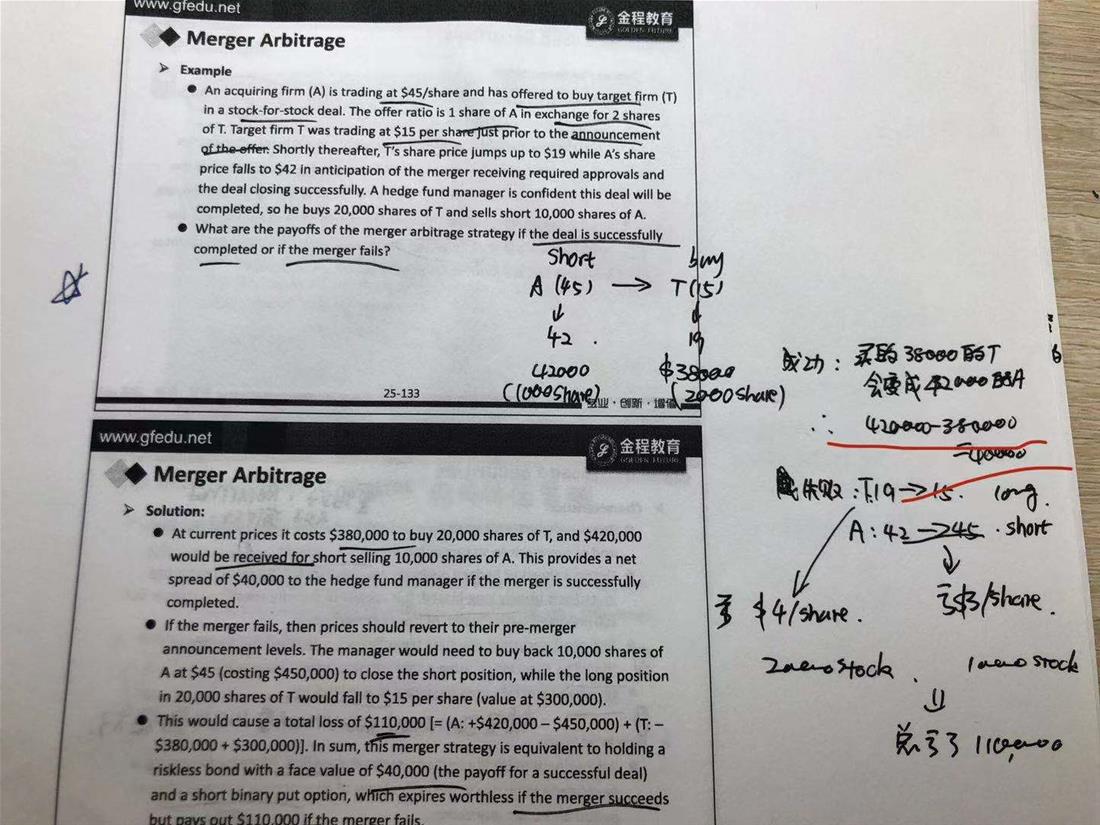 www.gfedu.net
金程教育
GOLDEN FUTURE
Merger Arbitrage
Example
An acquiring firm (A) is trading at $45/share and has offered to buy target firm (T)
in a stock-for-stock deal. The offer ratio is 1 share of A in exchange for 2 shares
of T. Target firm T was trading at $15 per share just prior to the announcement
of the offer. Shortly thereafter, T's share price jumps up to $19 while A's share
price falls to $42 in anticipation of the merger receiving required approvals and
the deal closing successfully. A hedge fund manager is confident this deal will be
completed, so he buys 20,000 shares of T and sells short 10,000 shares of A.
What are the payoffs of the merger arbitrage strategy if the deal is successfully
completed or if the merger fails?
short buy
A (45) → T(15)
↓ ↓
42 . 19
42000 $38000
(1000share) (2000share)
25-133
·创新·增值
成功: 买的38000的T
会变成42000的A
∴ 420000-380000
=40000
失败: T:19→15. long.
A: 42→45 . short
亏 $4/share. 亏$3/share.
20000stock . 10000stock
⇓
总亏了 110,000
www.gfedu.net
金程教育
GOLDEN FUTURE
Merger Arbitrage
Solution:
At current prices it costs $380,000 to buy 20,000 shares of T, and $420,000
would be received for short selling 10,000 shares of A. This provides a net
spread of $40,000 to the hedge fund manager if the merger is successfully
completed.
If the merger fails, then prices should revert to their pre-merger
announcement levels. The manager would need to buy back 10,000 shares of
A at $45 (costing $450,000) to close the short position, while the long position
in 20,000 shares of T would fall to $15 per share (value at $300,000).
This would cause a total loss of $110,000 [= (A: +$420,000 – $450,000) + (T: –
$380,000 + $300,000)]. In sum, this merger strategy is equivalent to holding a
riskless bond with a face value of $40,000 (the payoff for a successful deal)
and a short binary put option, which expires worthless if the merger succeeds
but pays out $110,000 if the merger fails.